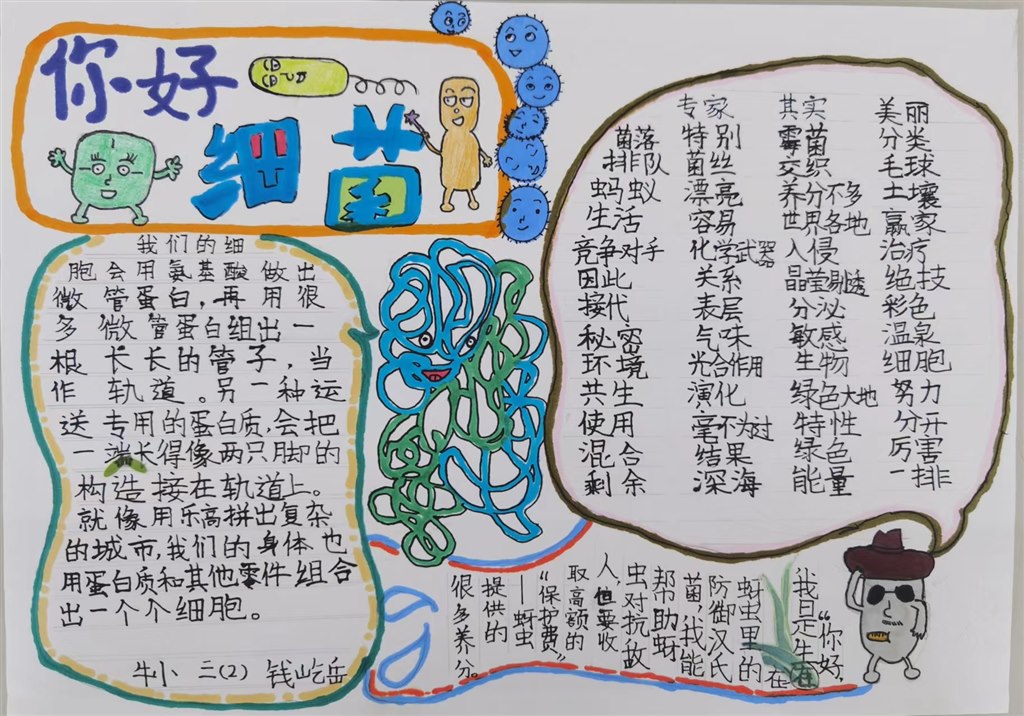 你好
细菌
我们的细
胞会用氨基酸做出
微管蛋白，再用很
多微管蛋白组出一
根长长的管子，当
作轨道。另一种运
送专用的蛋白质，会把
一端长得像两只脚的
构造接在轨道上。
就像用乐高拼出复杂
的城市，我们的身体也
用蛋白质和其他零件组合
出一个个细胞。
牛小 二(2) 钱屹岳
专家 其实 美丽
菌落 特别 霉菌 分类
排队 菌丝 交织 毛球
蚂蚁 漂亮 养分不多 土壤
生活 容易 世界各地 赢家
竞争对手 化学武器 入侵 治疗
因此 关系 晶莹剔透 绝技
接代 表层 分泌 彩色
秘密 气味 敏感 温泉
环境 光合作用 生物 细胞
共生 演化 绿色大地 努力
使用 毫不为过 特性 分开
混合 结果 绿色 厉害
剩余 深海 能量 一排
“你好，
我是生
在
蚜虫里的
防御汉氏
菌，我能
帮助蚜
虫对抗敌
人，但要收
取高额的
“保护费”，
—蚜虫
提供的
很多养分。